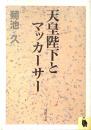 菊池久
天皇陛下と
マッカーサー